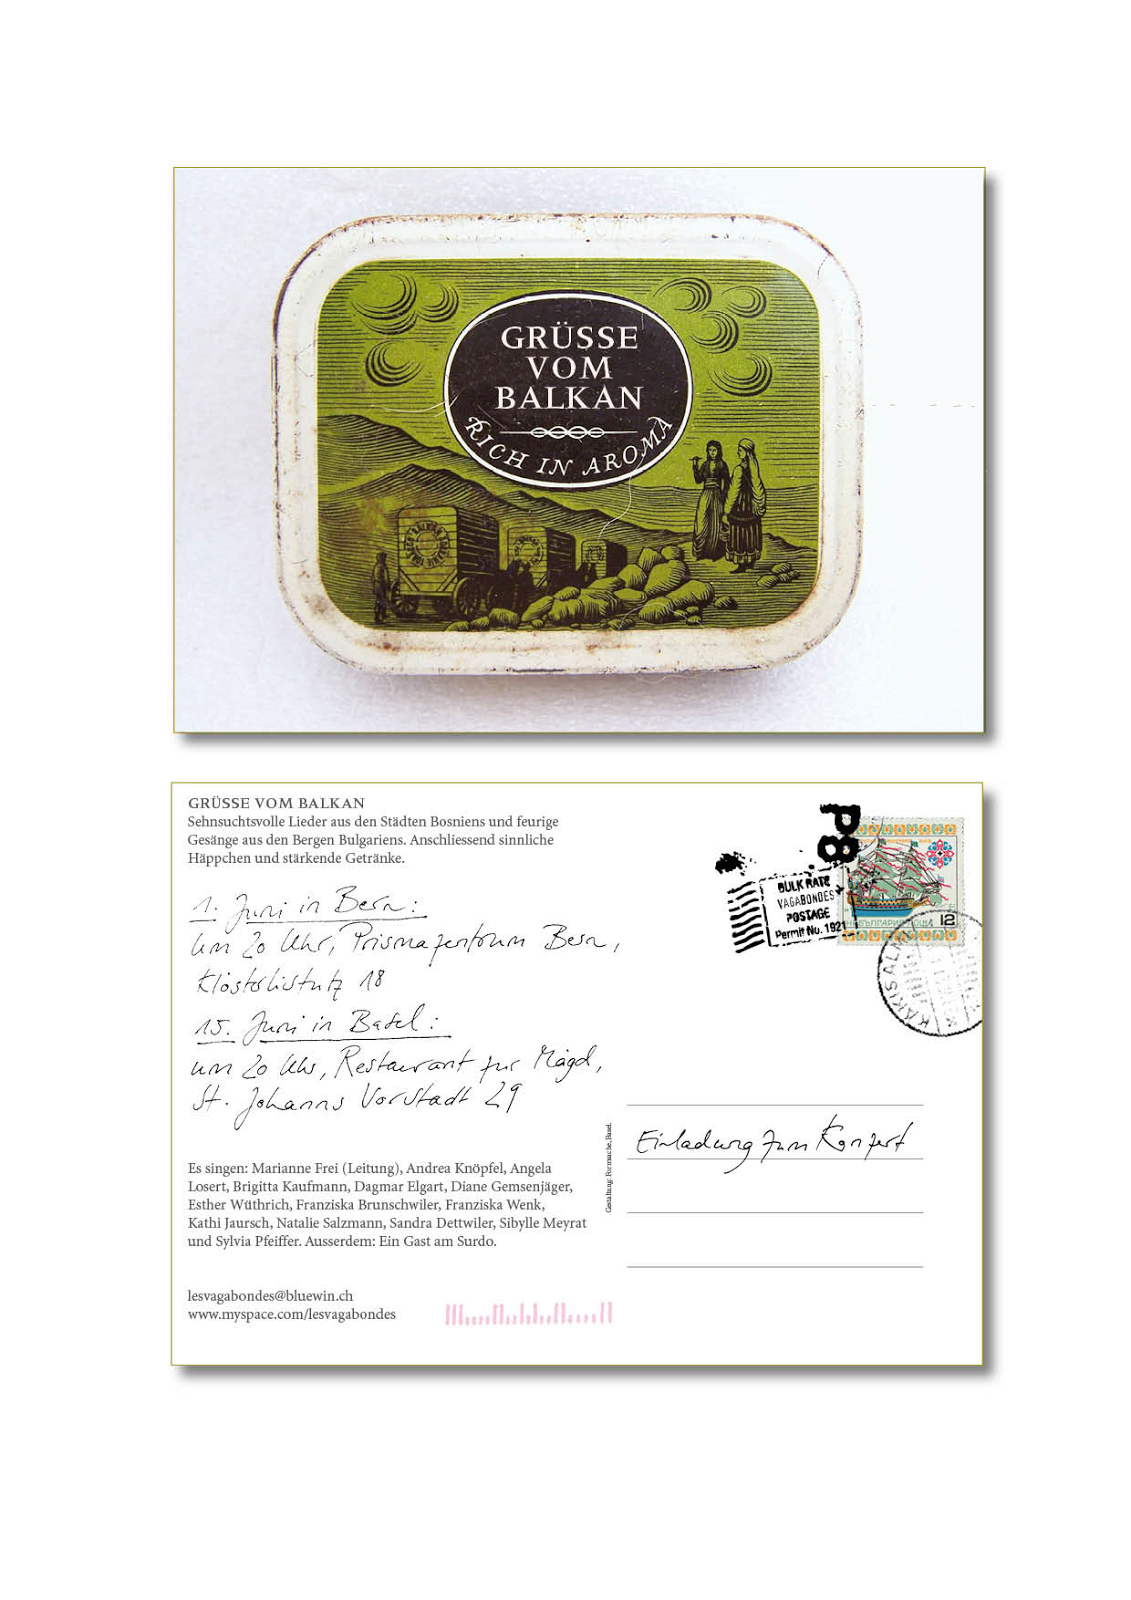 GRÜSSE
VOM
BALKAN
RICH IN AROMA
GRÜSSE VOM BALKAN
Sehnsuchtsvolle Lieder aus den Städten Bosniens und feurige
Gesänge aus den Bergen Bulgariens. Anschliessend sinnliche
Häppchen und stärkende Getränke.
1. Juni in Bern:
um 20 Uhr, Prismazentrum Bern,
Klösterlistutz 18
15. Juni in Basel:
um 20 Uhr, Restaurant zur Mägd,
St. Johanns Vorstadt 29
Es singen: Marianne Frei (Leitung), Andrea Knöpfel, Angela
Losert, Brigitta Kaufmann, Dagmar Elgart, Diane Gemsenjäger,
Esther Wüthrich, Franziska Brunschwiler, Franziska Wenk,
Kathi Jaursch, Natalie Salzmann, Sandra Dettwiler, Sibylle Meyrat
und Sylvia Pfeiffer. Ausserdem: Ein Gast am Surdo.
lesvagabondes@bluewin.ch
www.myspace.com/lesvagabondes
Gestaltung: Formsache, Basel.
P8
BULK RATE
VAGABONDES
POSTAGE
Permit No. 1921
12
Einladung zum Konzert